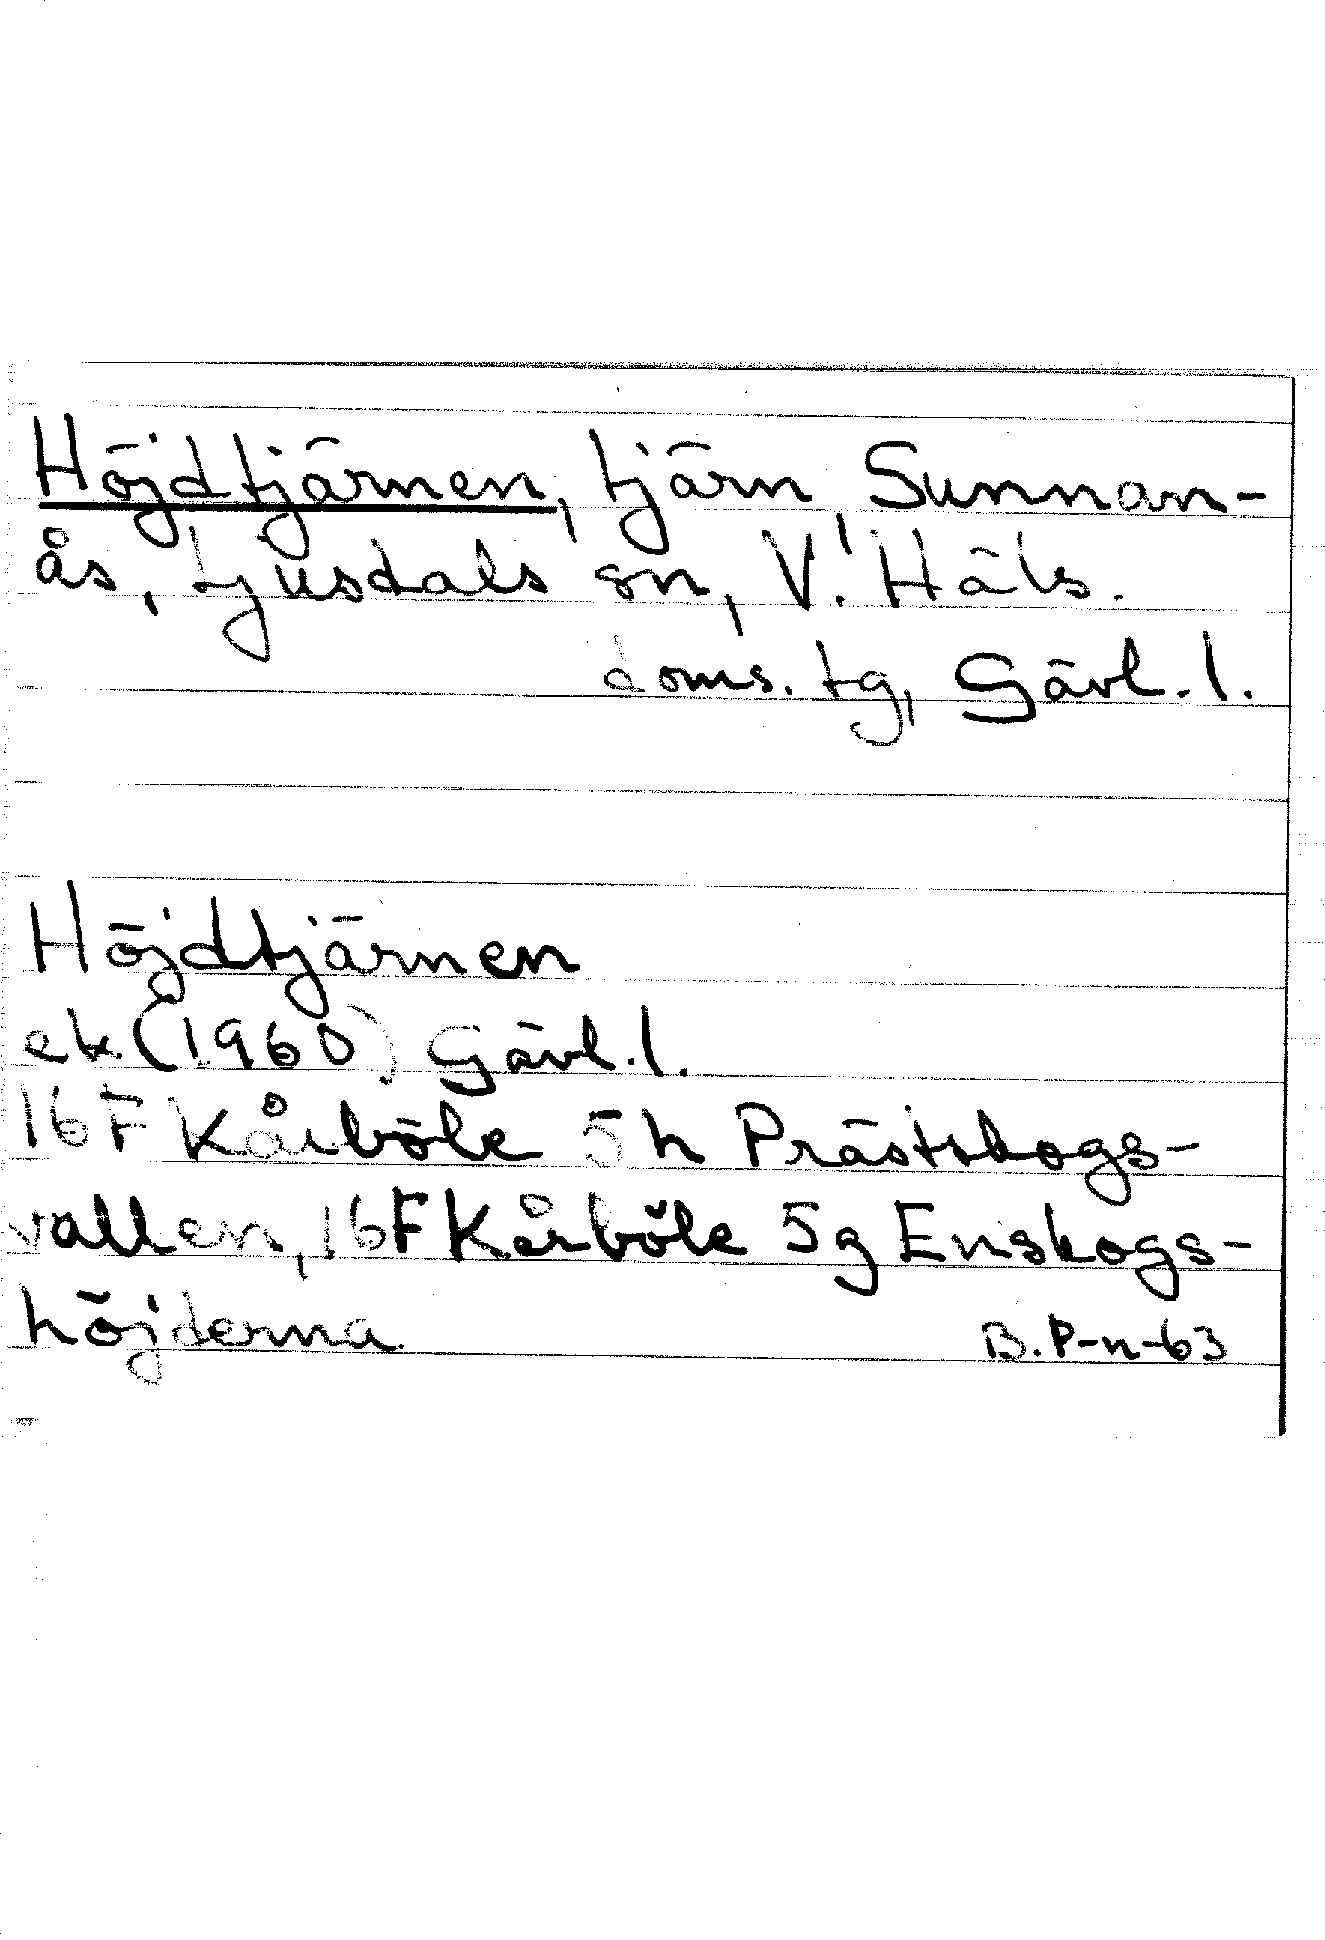 Höjdtjärnen, tjärn, Sunnan-
ås, Ljusdals sn, V. Häls.
doms. tg, Gävl. l.
Höjdtjärnen
ek (1960) Gävl. l.
16 F Kårböle 5 h Prästskogs-
vallen, 16 F Kårböle 5 g Enskogs-
höjderna.
B. P-n-63